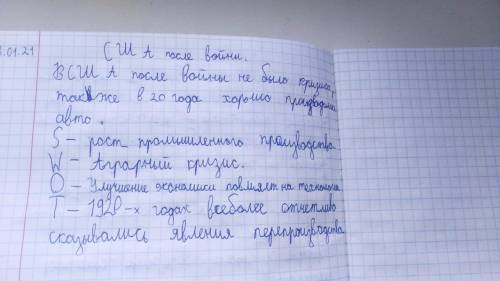 .01.21
США после войны.
В США после войны не было кризиса,
также в 20 года хорошо производили
авто.
S – рост промышленного производства
W – Аграрный кризис.
O – Улучшение экономики повлияет на технологии
T – 1920-х годах всё более отчётливо
сказывались явления перепроизводства